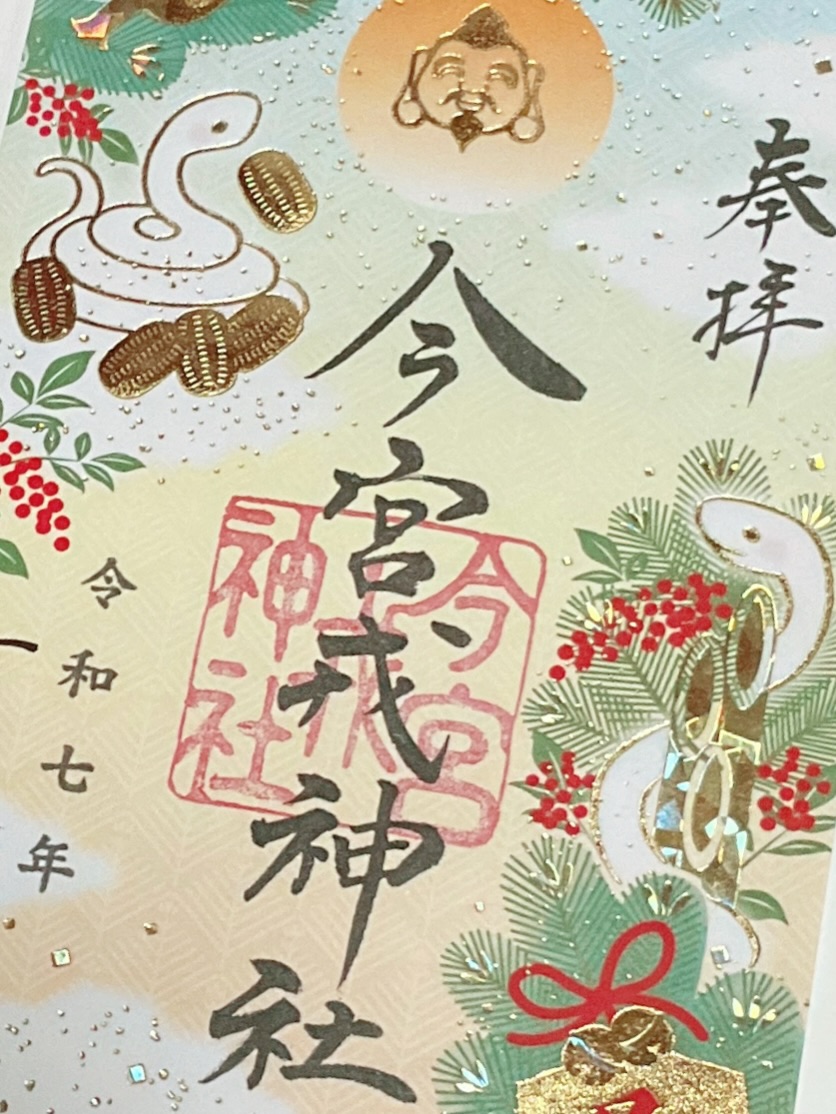 奉拝
今宮戎神社
今宮戎神社
令和七年